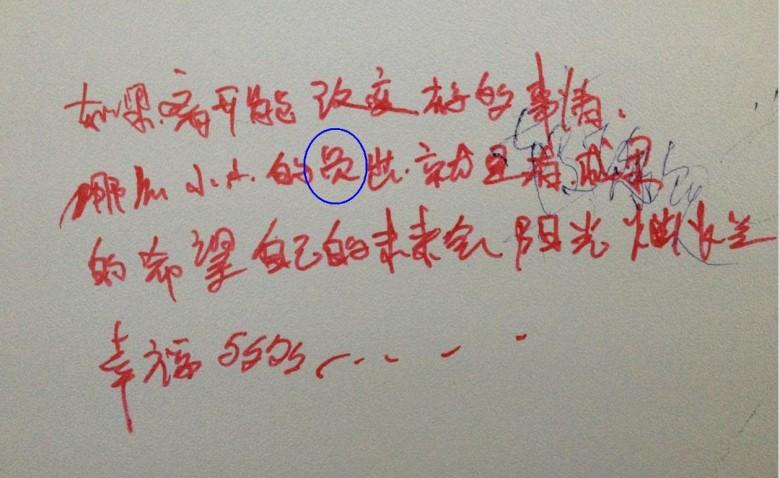 如果.看开能改变好的事情.
哪怕小小的 就是 成果
的希望自己的未来会阳光灿烂
幸福5555......